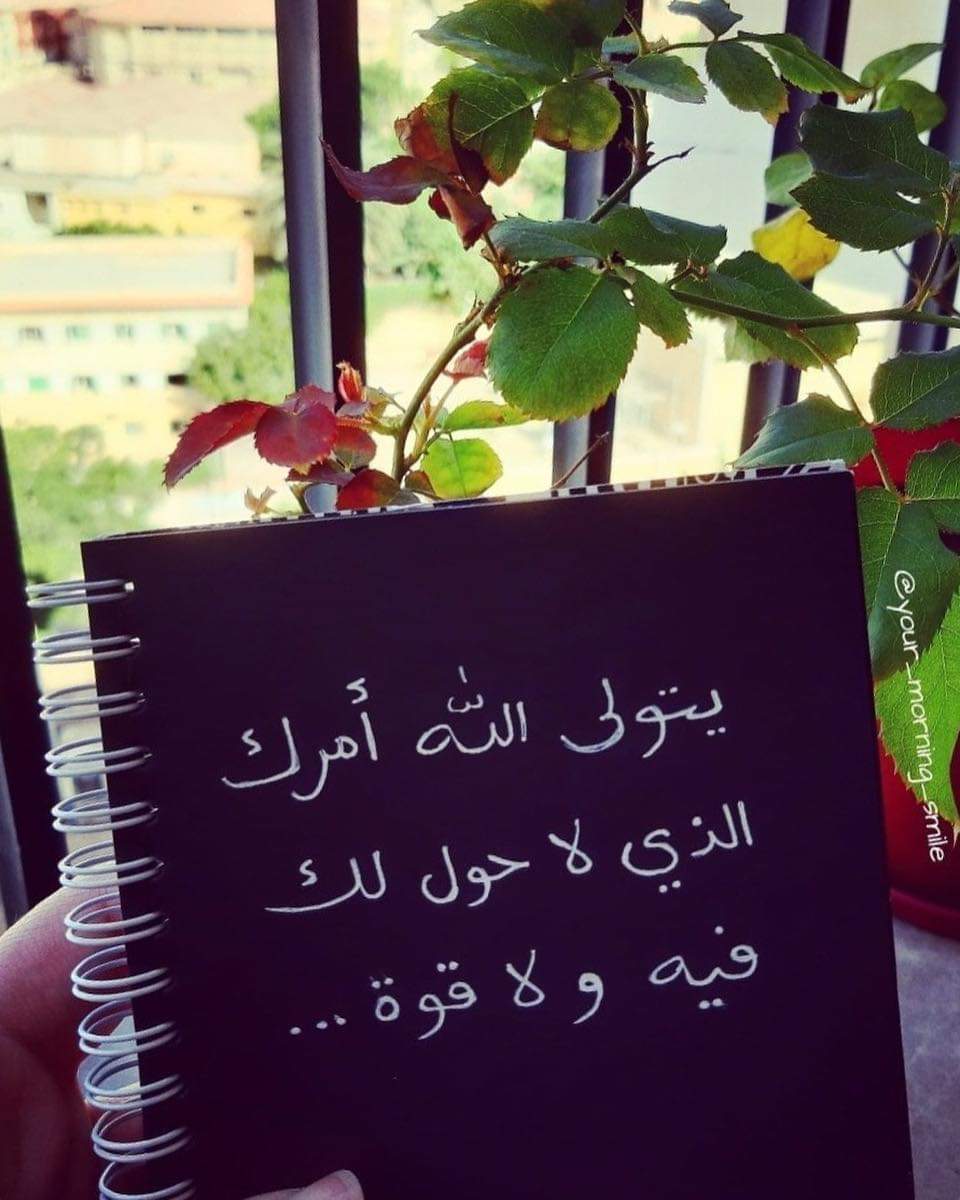 يتولى الله أمرك
الذي لا حول لك
فيه و لا قوة ...
@your_morning_smile